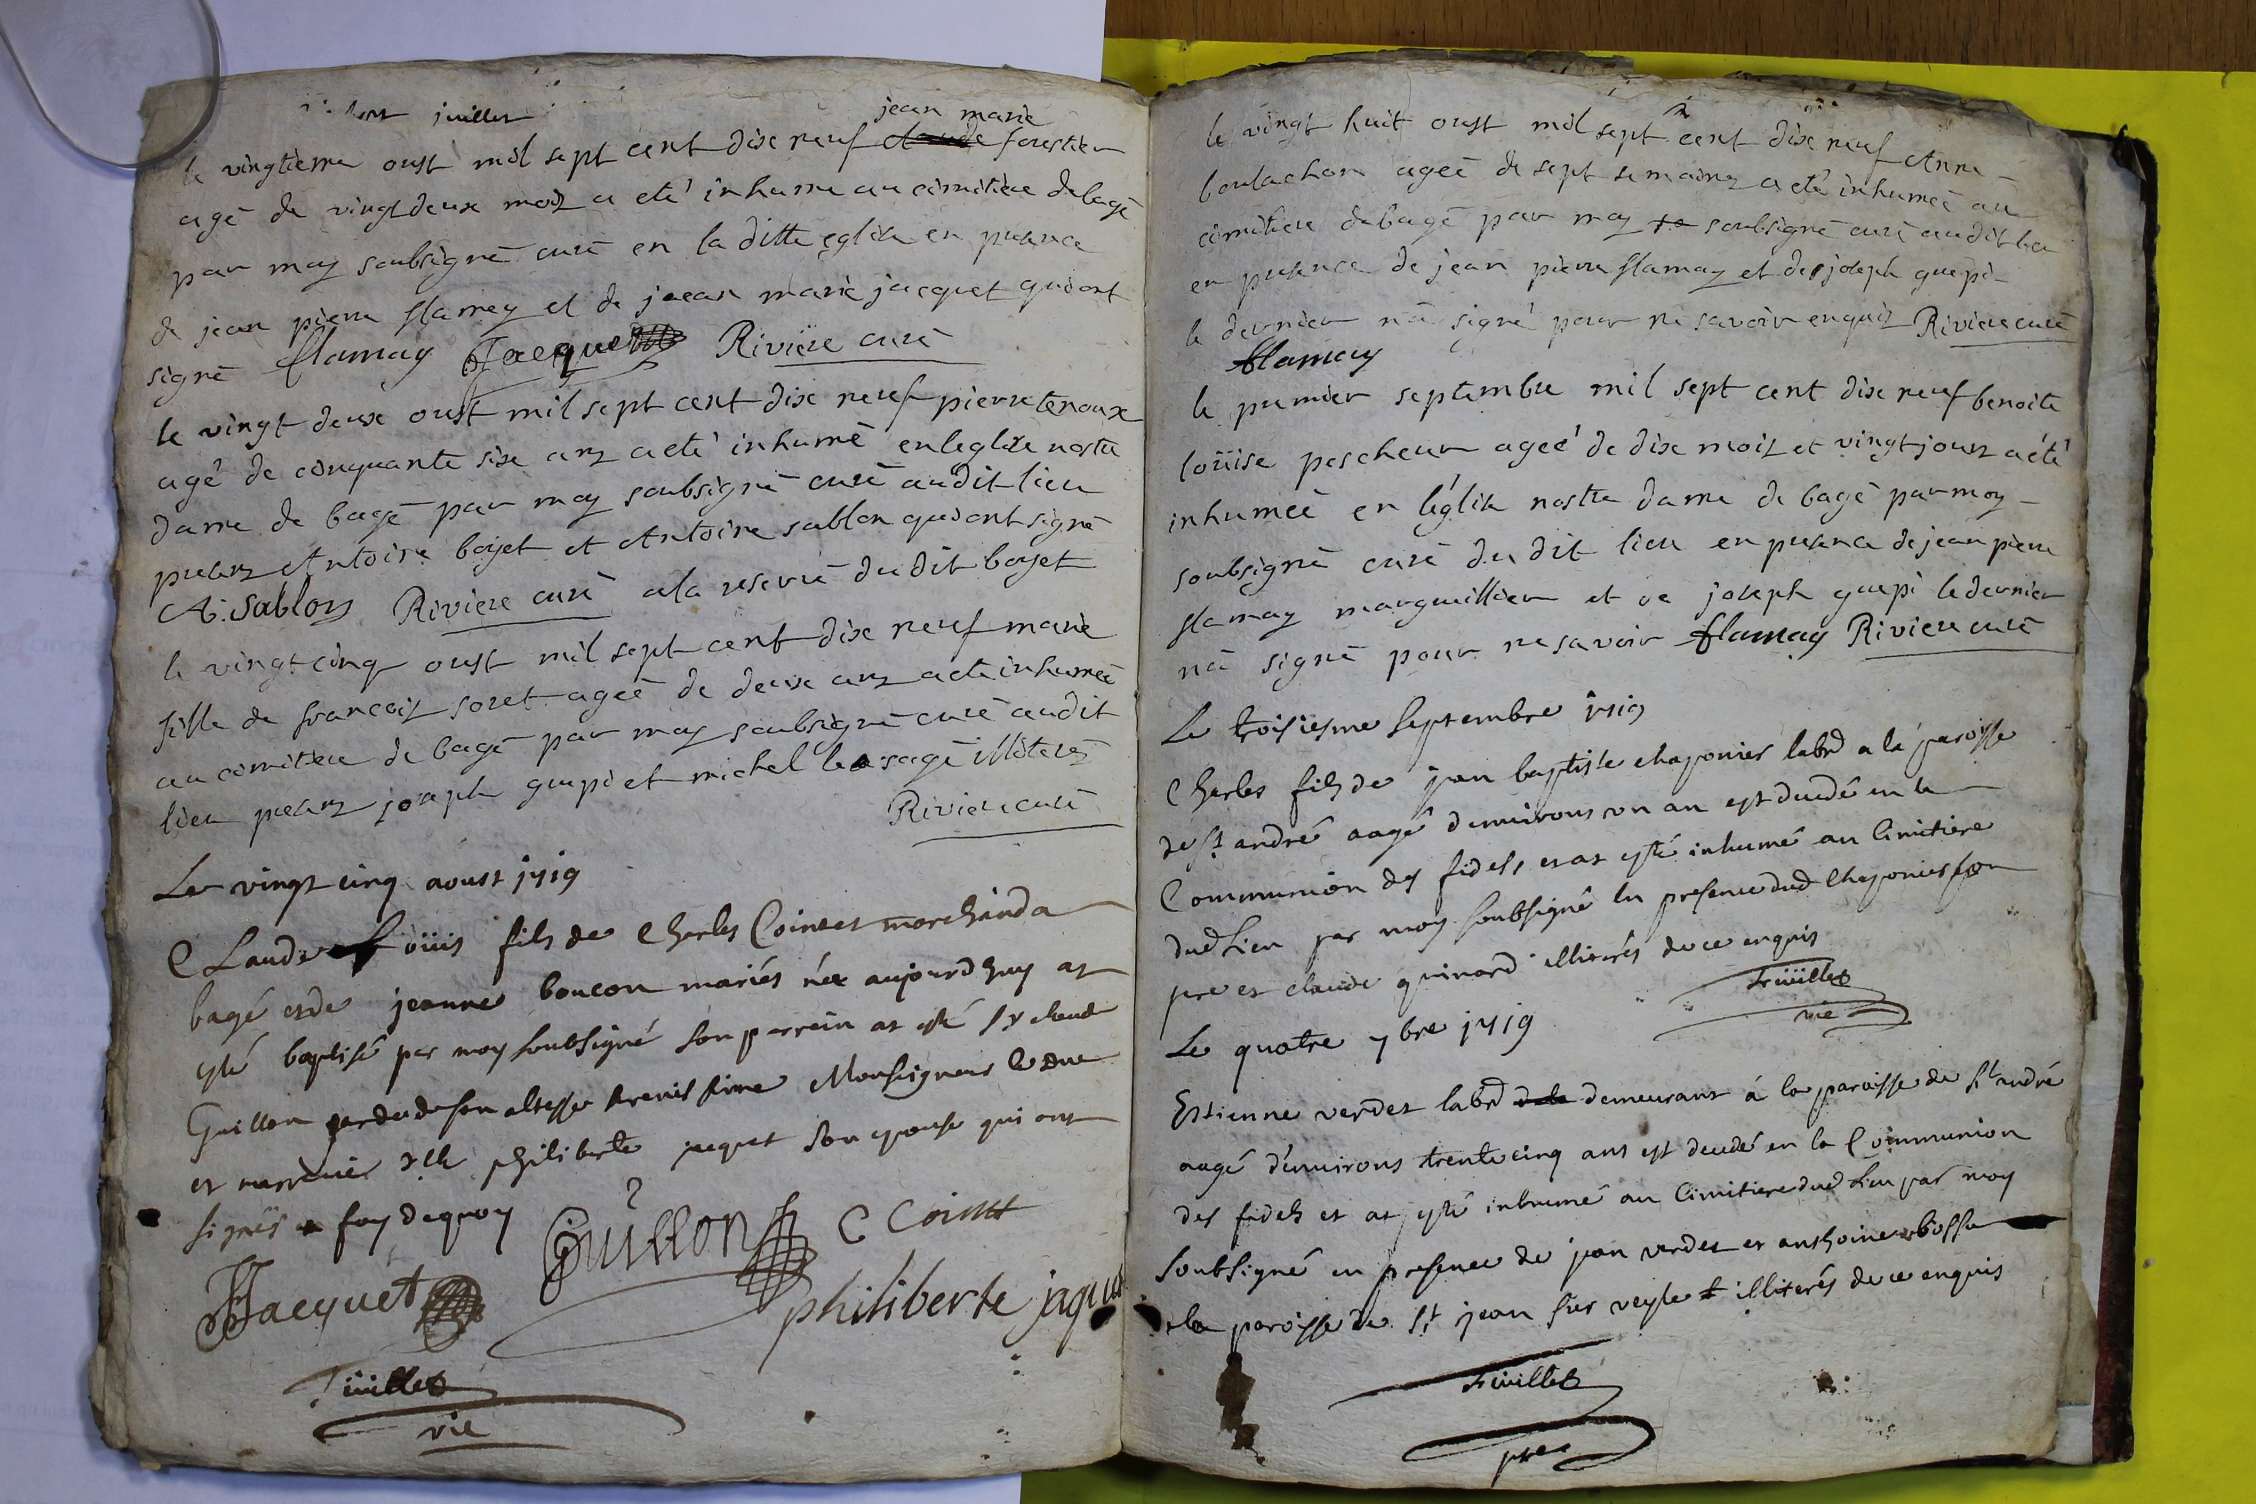 juillet
jean marie
le vingtieme oust mil sept cent dixe neuf claude forestier
agé de vingt deux moiz a eté inhumé au cimitiere de bagé
par moy soubsigné curé en la ditte eglise en presence
de jean pierre flamey et de jean marie jacquet qui ont
signé flamay Jacquet Riviere curé
le vingt deux oust mil sept cent dixe neuf pierre tenoux
agé de cinquante sixe anz a eté inhumé en leglise nostre
dame de bagé par moy soubsigné curé audit lieu
presanz Antoine boyet et Antoine sablon qui ont signé
A. Sablon Riviere curé a la reserve du dit boyet
le vingt cinq oust mil sept cent dixe neuf marie
fille de françoiz soret ageé de deuxe anz a eté inhumeé
au cimitiere de bagé par moy soubsigné curé audit
lieu presanz joseph guepi et michel lesage illiterez
Riviere curé
Le vingt cinq aoust 1719
Claude Loüis fils de Charles Cointet marchand a
bagé et de jeanne boucon mariés née aujourdhuy at
esté baptisé par moy soubsigné son parrein at esté sr claude
Guillon garde de son altesse serenissime Monseigneur le duc
et marreine dlle philiberte jaquet son epouse qui ont
signéz foy de quoy Guillon C Cointet
Jacquet philiberte jaquet
Feüillet
vic
le vingt huit oust mil sept cent dixe neuf Anne
boulachon ageé de sept semainez a eté inhumeé au
cimitiere de bagé par moy soubsigné curé audit lieu
en presence de jean pierre flamay et de joseph guepi
le dernier n'a signé pour ne savoir enquiz Riviere curé
flamay
le premier septembre mil sept cent dixe neuf benoite
loüise pescheur ageé de dixe moiz et vingt jourz a eté
inhumeé en l'église nostre dame de bagé par moy
soubsigné curé du dit lieu en presence de jean pierre
flamay marguillier et de joseph guepi le dernier
n'a signé pour ne savoir flamay Riviere curé
Le troisiesme septembre 1719
Charles fils de jean baptiste chaponier labr a la paroisse
de st andré aagé d'environs un an est decedé en la
Communion des fidels et at esté inhumé au Cimitiere
dud Lieu par moy soubsigné en presence dud Chaponier son
pere et claude guinard illiterés de ce enquis
Feüillet
vic
Le quatre 7bre 1719
Estienne verdet labr dela demeurant á la paroisse de st andré
aagé d'environs trente cinq ans est decedé en la Communion
des fidels et at esté inhumé au Cimitiere dud Lieu par moy
soubsigné en presence de jean verdet et anthoine bosse
de la paroisse de st jean sur veyle illiterés de ce enquis
Feüillet